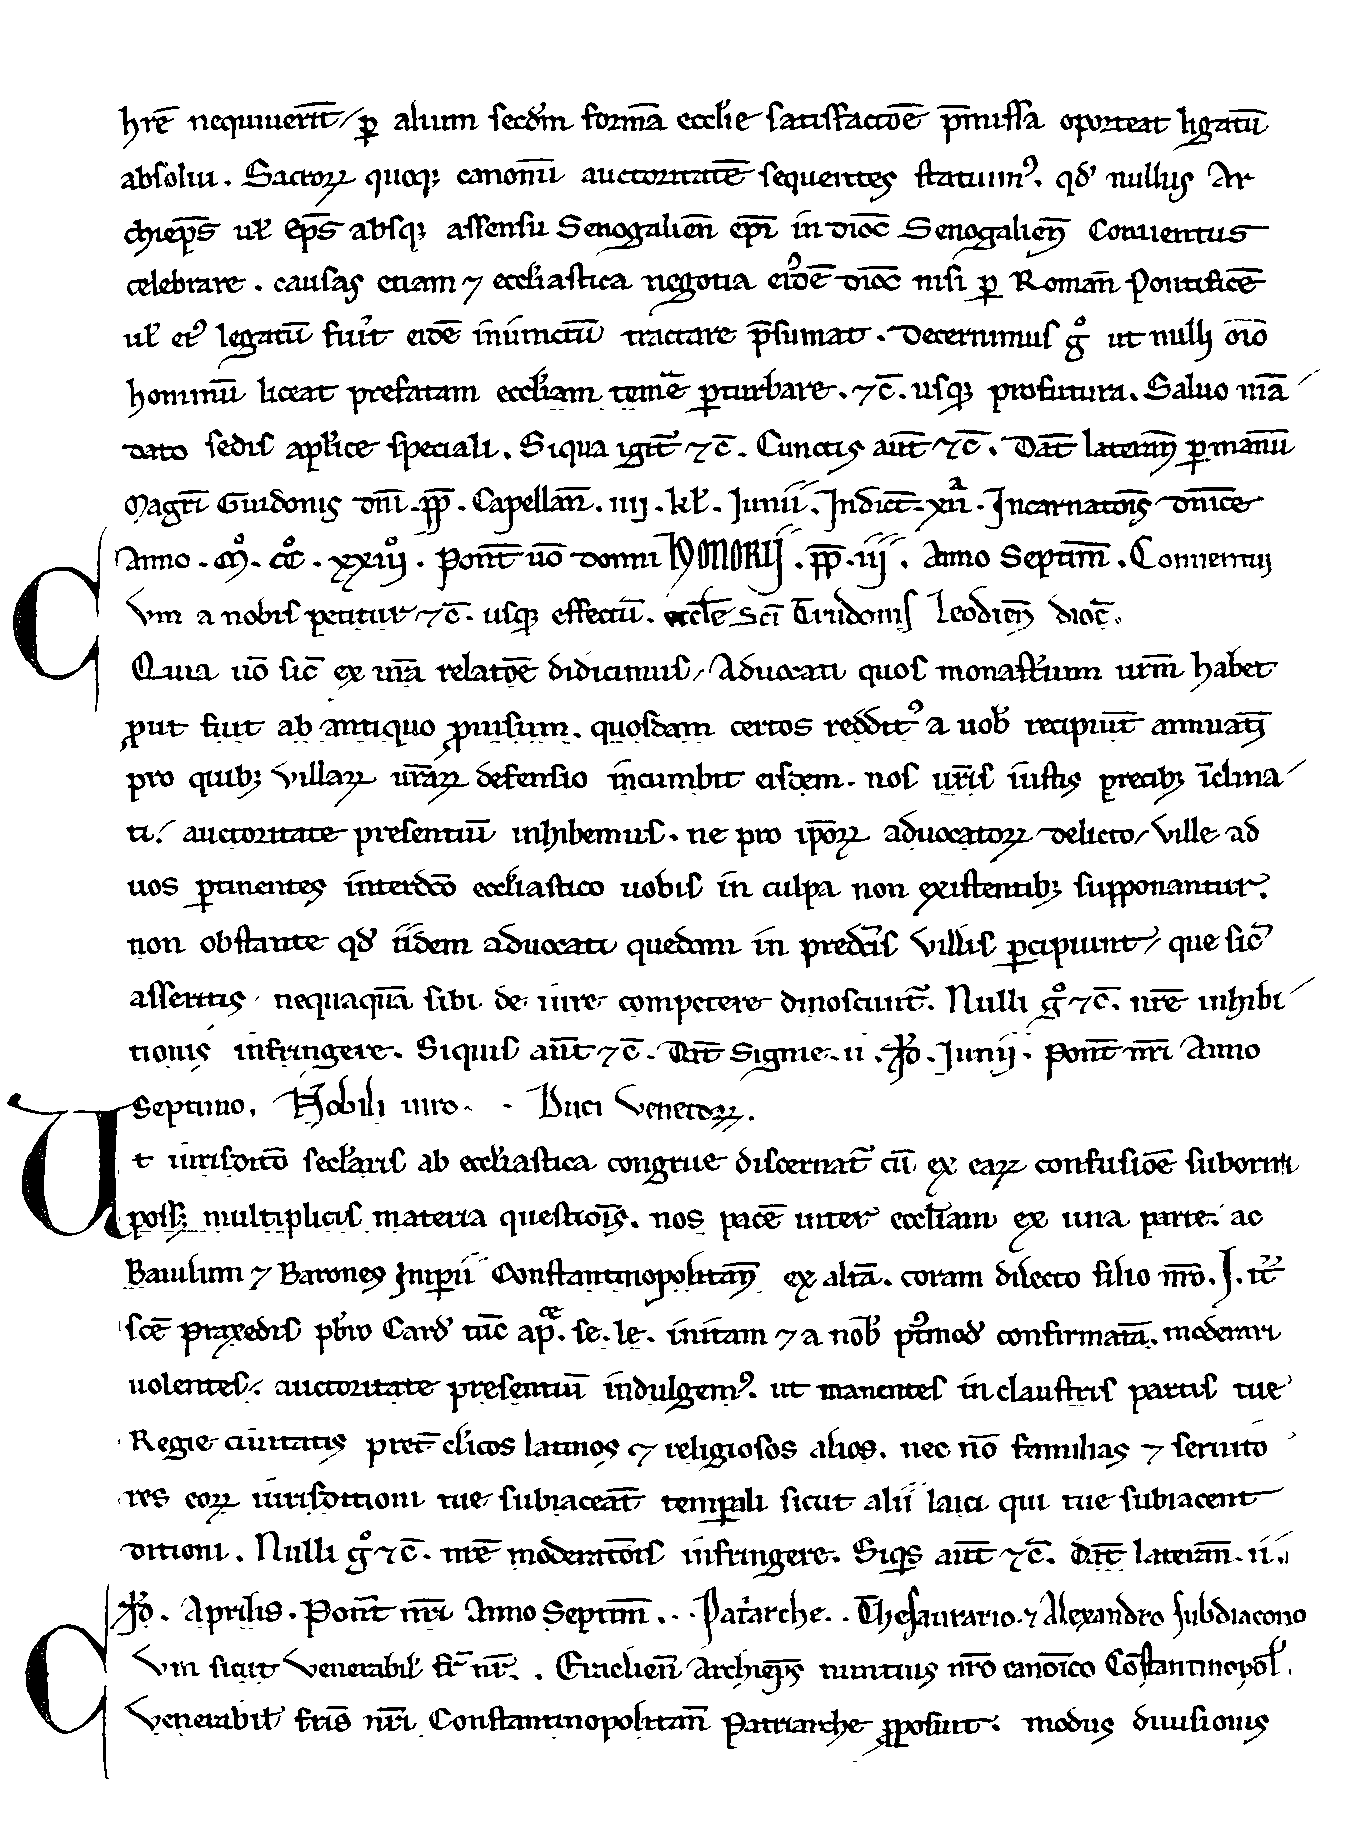 hr̄e nequiuerīt / ꝑ alium secd̄m formā eccl̄ie satisfactōe p̄missa oporteat ligatū
absolui . Sactoꝝ quoqꝫ canonū auctoritatē sequentes statuimꝰ . qd̓ nullus Ar
chiep̄s ul̓ Ep̄s absqꝫ assensu Senogalien̄ ep̄i in dioc̄ Senogalien̄ Conuentus
celebrare . causas etiam ⁊ eccl̓iastica negotia eiꝰdē dioc̄ nisi ꝑ Roman̄ Pontificē
ul̓ eiꝰ legatū fuīt eidē iniunctū tractare p̄sumat . Decernimus gͦ ut nulli oīo
hominū liceat prefatam eccl̓iam temē ꝑturbare . ⁊c̄ . usqꝫ profutura . Saluo mā
dato sedis apl̓ice speciali . Siqua igit̄ ⁊c̄ . Cunctis aūt ⁊c̄ . Dat̄ lateran̄ ꝑ manū
Magr̄i Guidonis dn̄i . pp̄ . Capellan̄ . iiij . kl̓ . Junii . Indict̄ . xiᵃ . Incarnatōis dn̄ice
Anno . Mͦ . CCͦ . xxiijͦ . Pont̄ uō domni HONORII . pp̄ . iij . Anno Septim̄ . Conuentuj
Cum a nobis petitur ⁊c̄ . usqꝫ effectū . eccl̄e Sc̄i Trudonis Leodien̄ dioc̄ .
Quia uō sic̄ ex ur̄a relatōe didicimus / Aduocati quos monast̓ium urm̄ habet
ꝓut fuit ab antiquo ꝓuisum . quosdam certos reddit̓ꝰ a uob̓ recipiūt annuatī
pro quibꝫ villaꝝ ur̄aꝝ defensio incumbit eisdem . nos ur̄is iustis precibꝫ īclina
ti / auctoritate presentiū inhibemus . ne pro ip̄oꝝ aduocatoꝝ delicto / ville ad
uos ꝑtinentes interdcō eccl̓iastico uobis in culpa non existentibꝫ supponantur .
non obstante qd̓ iidem aduocati quedam in predc̄is villis ꝑcipiunt / que sic̓
asseritis nequaquā sibi de iure competere dinoscunt̄ . Nulli gͦ ⁊c̄ . nr̄e inhibi
tionis infringere . Siquis aūt ⁊c̄ . Dat̄ Signie . ii . N̄o . Junij . Pont̄ nr̄i Anno
Septimo . Nobili uiro . . Duci Venetoꝝ .
Ut iurisdictō secl̓aris ab eccl̓iastica congrue discernat̄ cū ex eaꝝ confusiōe suboriri
possꝫ multiplicis materia questiōis . nos pacē inter eccl̓iam ex una parte . ac
Baiulum ⁊ Barones Imꝑii Constantinopolitan̄ ex altā . coram dilecto filio nr̄o . J . tt̄
sc̄e Praxedis pb̓ro Card̓ tūc ap̄ᶜᵉ . se . le . initam ⁊ a nob̓ pꝰtmod̓ confirmatā . moderari
uolentes / auctoritate presentiū indulgemꝰ . ut manentes in claustris partis tue
Regie ciuitatis pret̄ cl̓icos latinos ⁊ religiosos alios . nec nō familias ⁊ seruito
res eoꝝ iurisdictioni tue subiaceāt temꝑali sicut alii laici qui tue subiacent
ditioni . Nulli gͦ ⁊c̄ . nr̄e moderatōis infringere . Siqis aūt ⁊c̄ . Dat̄ lateran̄ . ii .
N̄o . Aprilis . Pont̄ nr̄i Anno Septim̄ . . . Pat̓arche . . Thesaurario . ⁊ Alexandro subdiacono
Cum sicut Venerabil̓ fr̄ nr̄ . . Eraclien̄ Archiep̄s nuntius nr̄o canōico Cōstantinopol̓ .
Venerabil̓ fr̄is nr̄i Constantinopolitan̄ Patriarche ꝓposuit . modus diuisionis